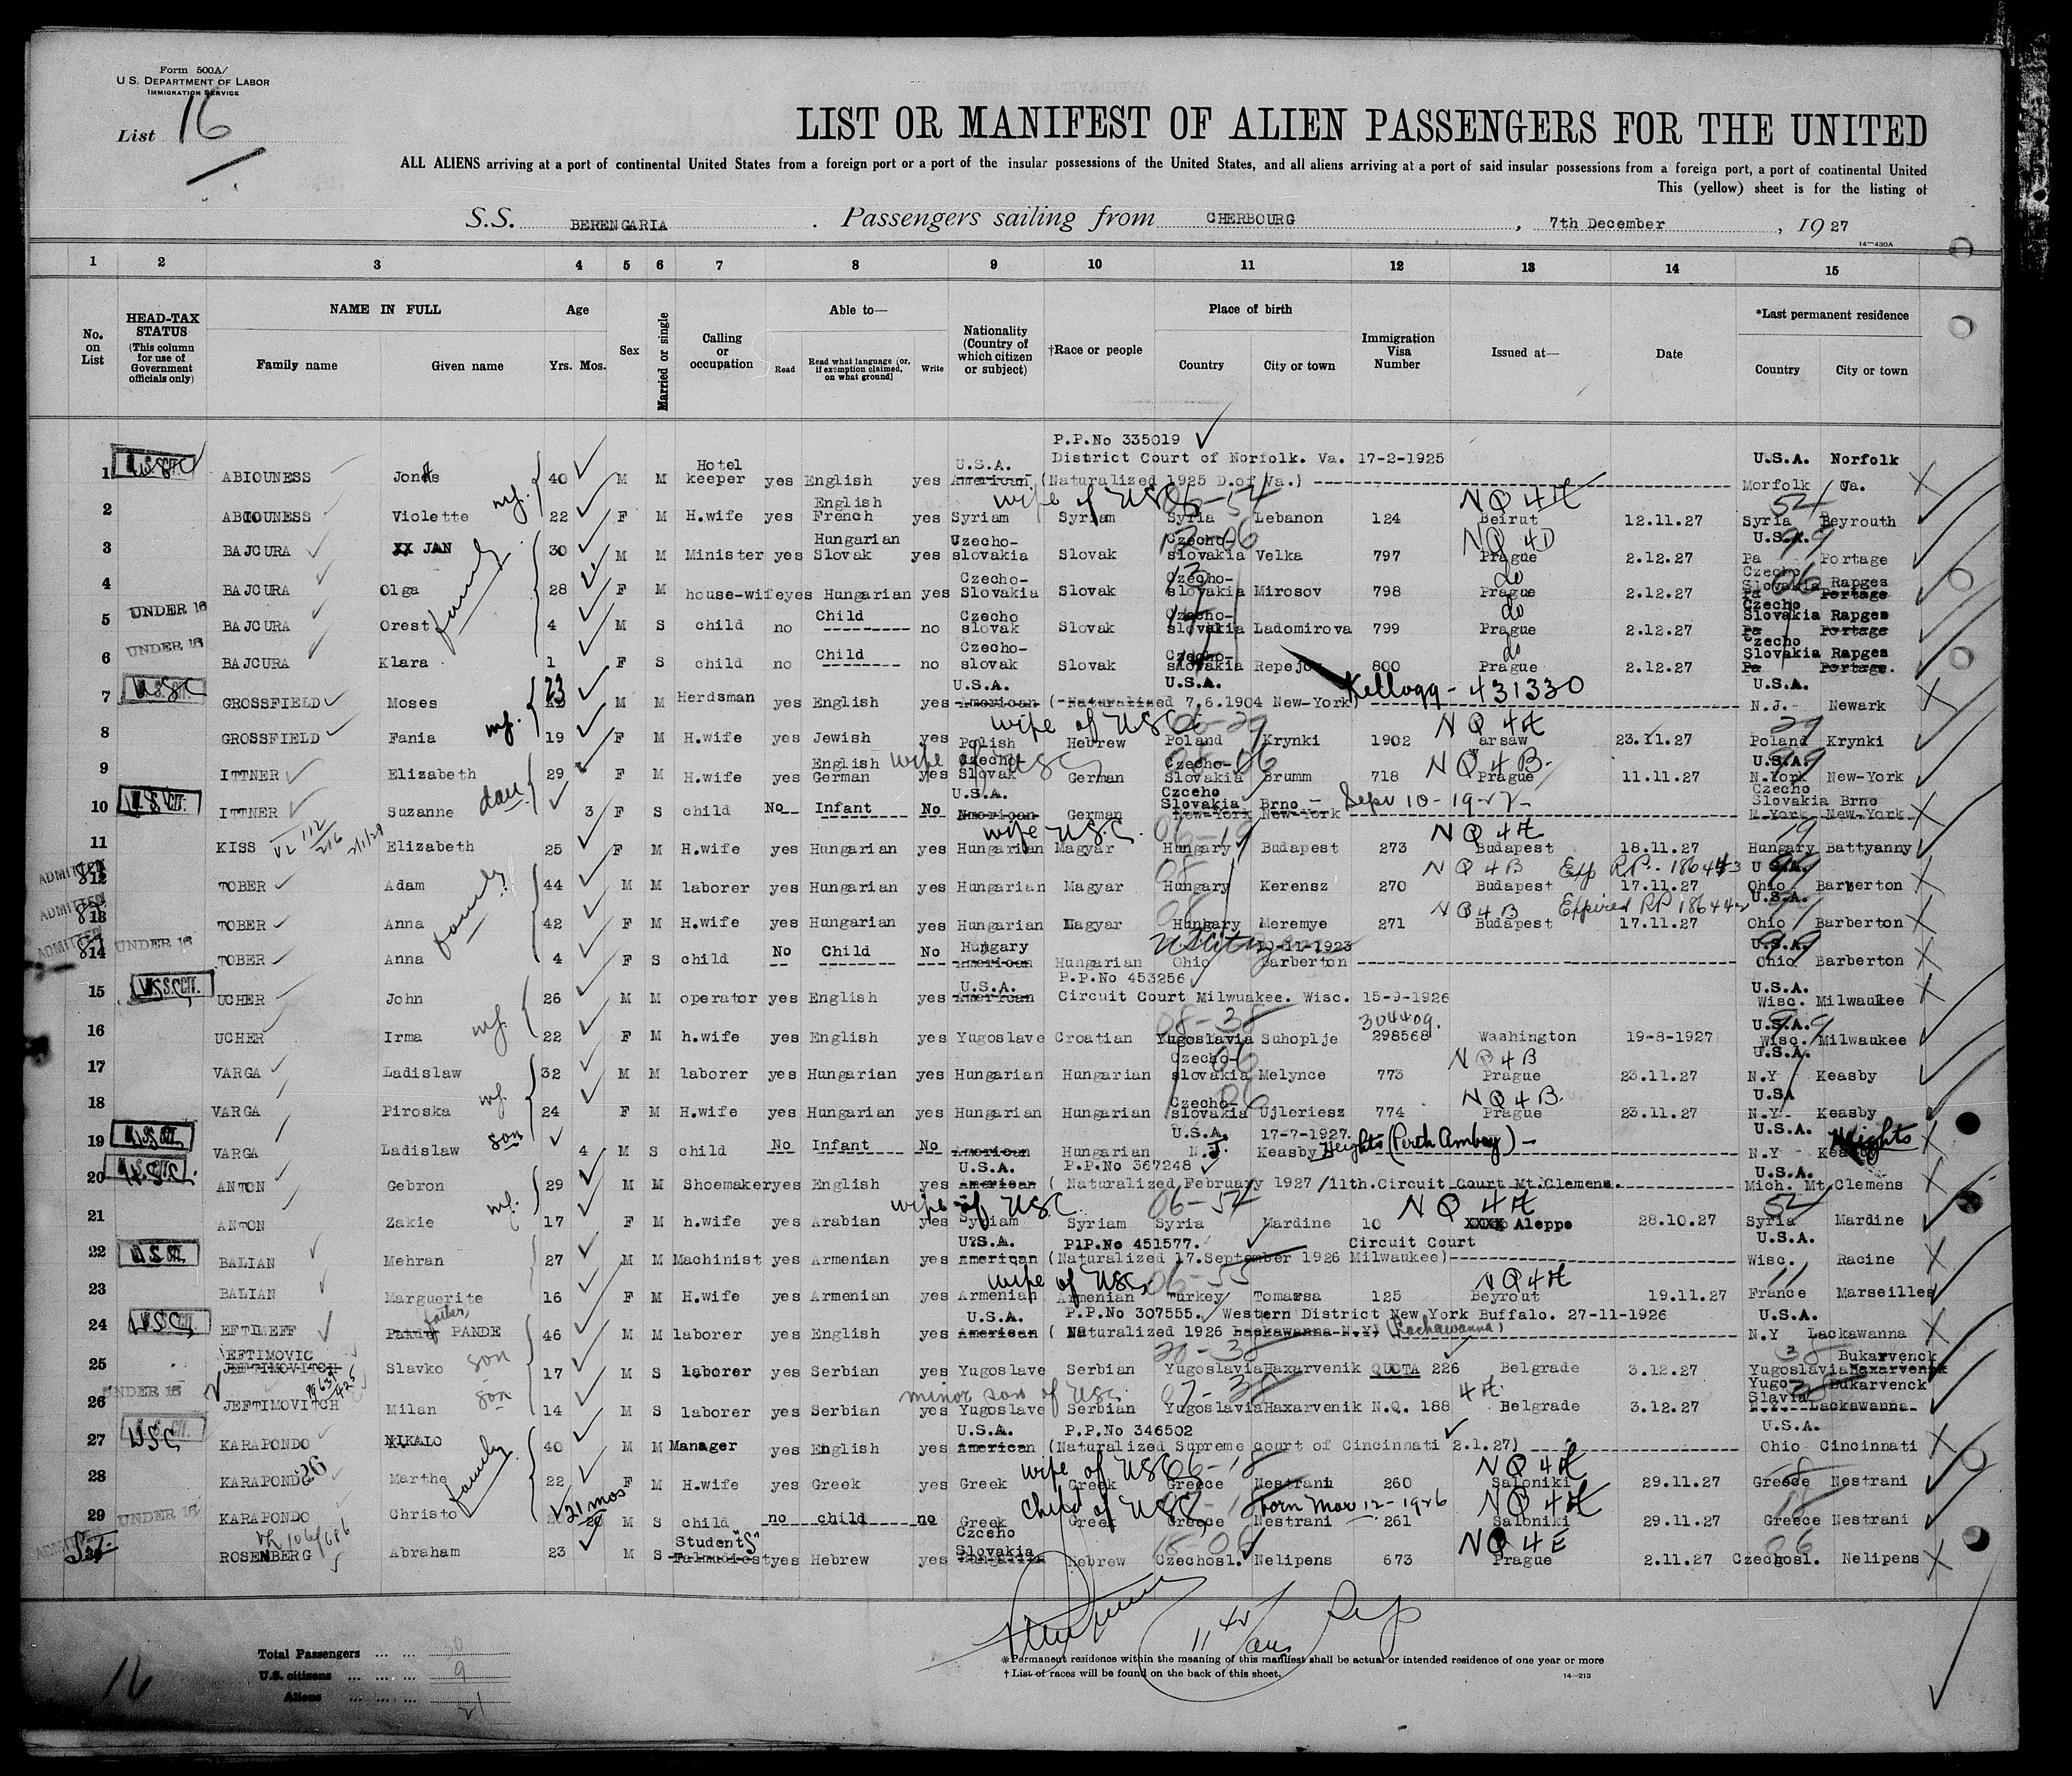 Form 500A
U.S. DEPARTMENT OF LABOR
IMMIGRATION SERVICE
List 16
LIST OR MANIFEST OF ALIEN PASSENGERS FOR THE UNITED
ALL ALIENS arriving at a port of continental United States from a foreign port or a port of the insular possessions of the United States, and all aliens arriving at a port of said insular possessions from a foreign port, a port of continental United
This (yellow) sheet is for the listing of
S.S. BERENGARIA. Passengers sailing from CHERBOURG, 7th December, 1927
14-430A
1 2 3 4 5 6 7 8 9 10 11 12 13 14 15
No. on List
HEAD-TAX STATUS (This column for use of Government officials only)
NAME IN FULL
Family name Given name
Age
Yrs. Mos.
Sex
Married or single
Calling or occupation
Able to—
Read Read what language (or, if exemption claimed, on what ground) Write
Nationality (Country of which citizen or subject)
†Race or people
Place of birth
Country City or town
Immigration Visa Number
Issued at—
Date
*Last permanent residence
Country City or town
P.P.No 335019
U.S.A. District Court of Norfolk. Va. 17-2-1925 U.S.A. Norfolk
1 ABIOUNESS 40 M M Hotel keeper yes English yes American (Naturalized 1925 D.of Va.) Va.
wife of USC 06-54 NQ 4A 54
2 ABIOUNESS Violette 22 F M H.wife yes English French yes Syriam Syriam Syria Lebanon 124 Beirut 12.11.27 Syria Beyrouth
3 BAJCURA XX JAN 30 M M Minister yes Hungarian Slovak yes Czecho-slovakia Slovak Czecho-slovakia Velka 797 NQ 4D Prague 2.12.27 U.S.A. Pa Portage
4 BAJCURA Olga 28 F M house-wife yes Hungarian yes Czecho-Slovakia Slovak Czecho-slovakia Mirosov 798 do Prague 2.12.27 Czecho Slovakia Rapges Pa Portage
5 UNDER 16 BAJCURA Orest 4 M S child no Child no Czecho slovak Slovak Czecho-slovakia Ladomirova 799 do Prague 2.12.27 Czecho Slovakia Rapges Pa Portage
6 UNDER 16 BAJCURA Klara 1 F S child no Child no Czecho-slovak Slovak Czecho-slovakia 800 do Prague 2.12.27 Czecho Slovakia Rapges Pa Portage.
family
7 GROSSFIELD Moses 23 M M Herdsman yes English yes U.S.A. American (Naturalized 7.6.1904 New-York) U.S.A. Kellogg - 431330 U.S.A. N.J. Newark
wife of USC 06-29 NQ 4A 29
8 GROSSFIELD Fania 19 F M H.wife yes Jewish yes Polish Hebrew Poland Krynki 1902 Warsaw 23.11.27 Poland Krynki
wife of USC
9 ITTNER Elizabeth 29 F M H.wife yes English German yes Czecho-Slovak German Czecho-Slovakia Brumm 718 NQ 4B Prague 11.11.27 U.S.A. N.York New-York
10 U.S. CIT. ITTNER Suzanne dau 3 F S child No Infant No U.S.A. American German Czceho Slovakia Brno New-York New-York Sept 10-1927 Czecho Slovakia Brno N.York New-York
wife U.S.C. 06-19 NQ 4A 19
11 KISS Elizabeth 25 F M H.wife yes Hungarian yes Hungarian Magyar Hungary Budapest 273 Budapest 18.11.27 Hungary Battyanny
12 ADMITTED TOBER Adam 44 M M laborer yes Hungarian yes Hungarian Magyar Hungary Kerensz 270 NQ 4B Exp RP. 186443 Budapest 17.11.27 U.S.A. Ohio Barberton
13 ADMITTED TOBER Anna 42 F M H.wife yes Hungarian yes Hungarian Magyar Hungary Meremye 271 NQ 4B Expired RP 186442 Budapest 17.11.27 U.S.A. Ohio Barberton
14 ADMITTED UNDER 16 TOBER Anna 4 F S child No Child No Hungary American Hungarian Ohio Barberton 10-11-1923 U.S.A. Ohio Barberton
family
P.P.No 453256
15 UCHER John 26 M M operator yes English yes U.S.A. American Circuit Court Milwuakee. Wisc. 15-9-1926 U.S.A. Wisc. Milwaukee
08-38 304409.
16 UCHER Irma 22 F M h.wife yes English yes Yugoslave Croatian Yugoslavia Suhoplje 298568 Washington 19-8-1927 U.S.A. Wisc. Milwaukee
17 VARGA Ladislaw 32 M M laborer yes Hungarian yes Hungarian Hungarian Czecho-slovakia Melynce 773 NQ 4B Prague 23.11.27 U.S.A. N.Y Keasby
18 VARGA Piroska 24 F M H.wife yes Hungarian yes Hungarian Hungarian Czecho-slovakia Ujleriesz 774 NQ 4B. Prague 23.11.27 USA N.Y. Keasby
19 VARGA Ladislaw son 4 M S child No Infant No American Hungarian U.S.A. N.J. 17-7-1927. Keasby Heights (Perth Amboy) U.S.A. N.Y Heights
20 ANTON Gebron 29 M M Shoemaker yes English yes U.S.A. American P.P.No 367248 (Naturalized February 1927 /11th.Circuit Court Mt.Clemens. U.S.A. Mich. Mt.Clemens
wife of USC. 06-54 NQ 4A
21 ANTON Zakie 17 F M h.wife yes Arabian yes Syriam Syriam Syria Mardine 10 XXXX Aleppo 28.10.27 Syria Mardine
22 BALIAN Mehran 27 M M Machinist yes Armenian yes U.S.A. American P1P.No 451577. Circuit Court (Naturalized 17.September 1926 Milwaukee) U.S.A. Wisc. Racine
wife of USC 06-55 NQ 4A 11
23 BALIAN Marguerite 16 F M H.wife yes Armenian yes Armenian Armenian Turkey Tomarsa 125 Beyrout 19.11.27 France Marseilles
24 EFTIMEFF father PANDE 46 M M laborer yes English yes U.S.A. American P.P.No 307555. Western District New York Buffalo. 27-11-1926 (Naturalized 1926 Lackawanna N.Y.) (Lackawanna) U.S.A. N.Y Lackawanna
20-38 38
25 EFTIMOVIC JEFTIMOVITCH Slavko son 17 M S laborer yes Serbian yes Yugoslave Serbian Yugoslavia Haxarvenik QUOTA 226 Belgrade 3.12.27 Yugoslavia Bukarvenck Haxarvenik
minor son of USC 07-38 4A
26 UNDER 16 JEFTIMOVITCH Milan son 14 M S laborer yes Serbian yes Yugoslave Serbian Yugoslavia Haxarvenik N.Q. 188 Belgrade 3.12.27 Yugo-Slavia Bukarvenck N.Y. Lackawanna
27 KARAPONDO NIKALO 40 M M Manager yes English yes U.S.A. American P.P.No 346502 (Naturalized Supreme court of Cincinnati 2.1.27) U.S.A. Ohio Cincinnati
wife of USC 06-18 NQ 4A
28 KARAPONDO 26 Marthe 22 F M H.wife yes Greek yes Greek Greek Greece Nestrani 260 Saloniki 29.11.27 Greece Nestrani
family
21 mos child of USC born Mar 12-1926 NQ 4A 18
29 UNDER 16 KARAPONDO Christo M S child no child no Greek Greek Greece Nestrani 261 Saloniki 29.11.27 Greece Nestrani
30 ROSENBERG Abraham 23 M S Student "S" Talmudiest yes Hebrew yes Czceho Slovakia Hebrew Czechosl. Nelipens 673 NQ 4E Prague 2.11.27 Czechosl. Nelipens
Total Passengers 30
U.S. citizens 9
Aliens 21
16
*Permanent residence within the meaning of this manifest shall be actual or intended residence of one year or more
†List of races will be found on the back of this sheet.
14-213